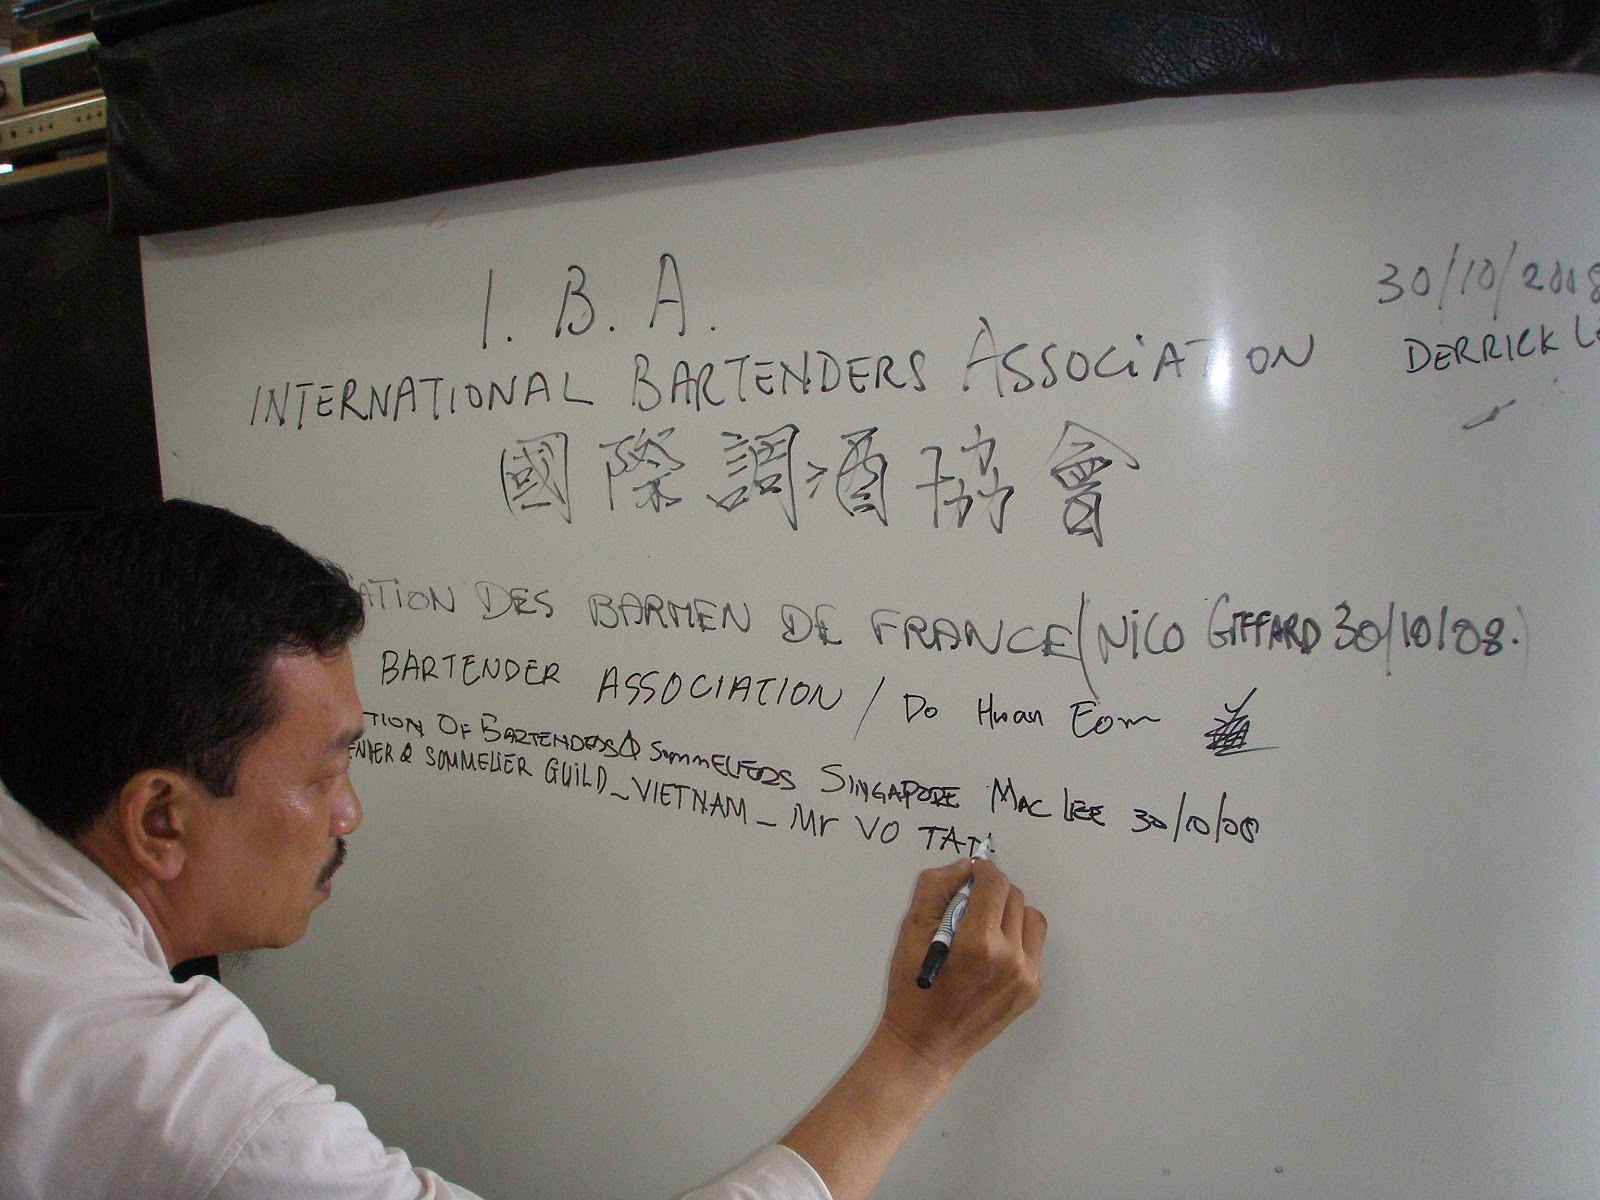 I. B. A.
30/10/2008
INTERNATIONAL BARTENDERS ASSOCIATION
DERRICK
國際調酒協會
ATION DES BARMEN DE FRANCE/(NICO GIFFARD 30/10/08.)
BARTENDER ASSOCIATION / Do Hwan Eom
TION OF BARTENDERS & SOMMELIERS SINGAPORE MAC LEE 30/10/08
ENDER & SOMMELIER GUILD_VIETNAM_ Mr VO TA